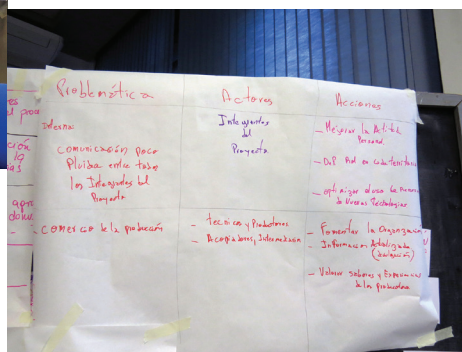 Problemática
Actores
Acciones
Interna:
comunicación poco
fluida entre todos
los Integrantes del
Proyecto
Integrantes
del
Proyecto
- Mejorar la Actitud
Personal
- Optimizar el uso de
de Nuevas Tecnologías
Comercio de la producción
- Tecnicos y Productores
- Acopiadores, Intermediarios
- Fomentar la Organización
- Información Actualizada
- Valorar saberes y Experiencias
de los productores